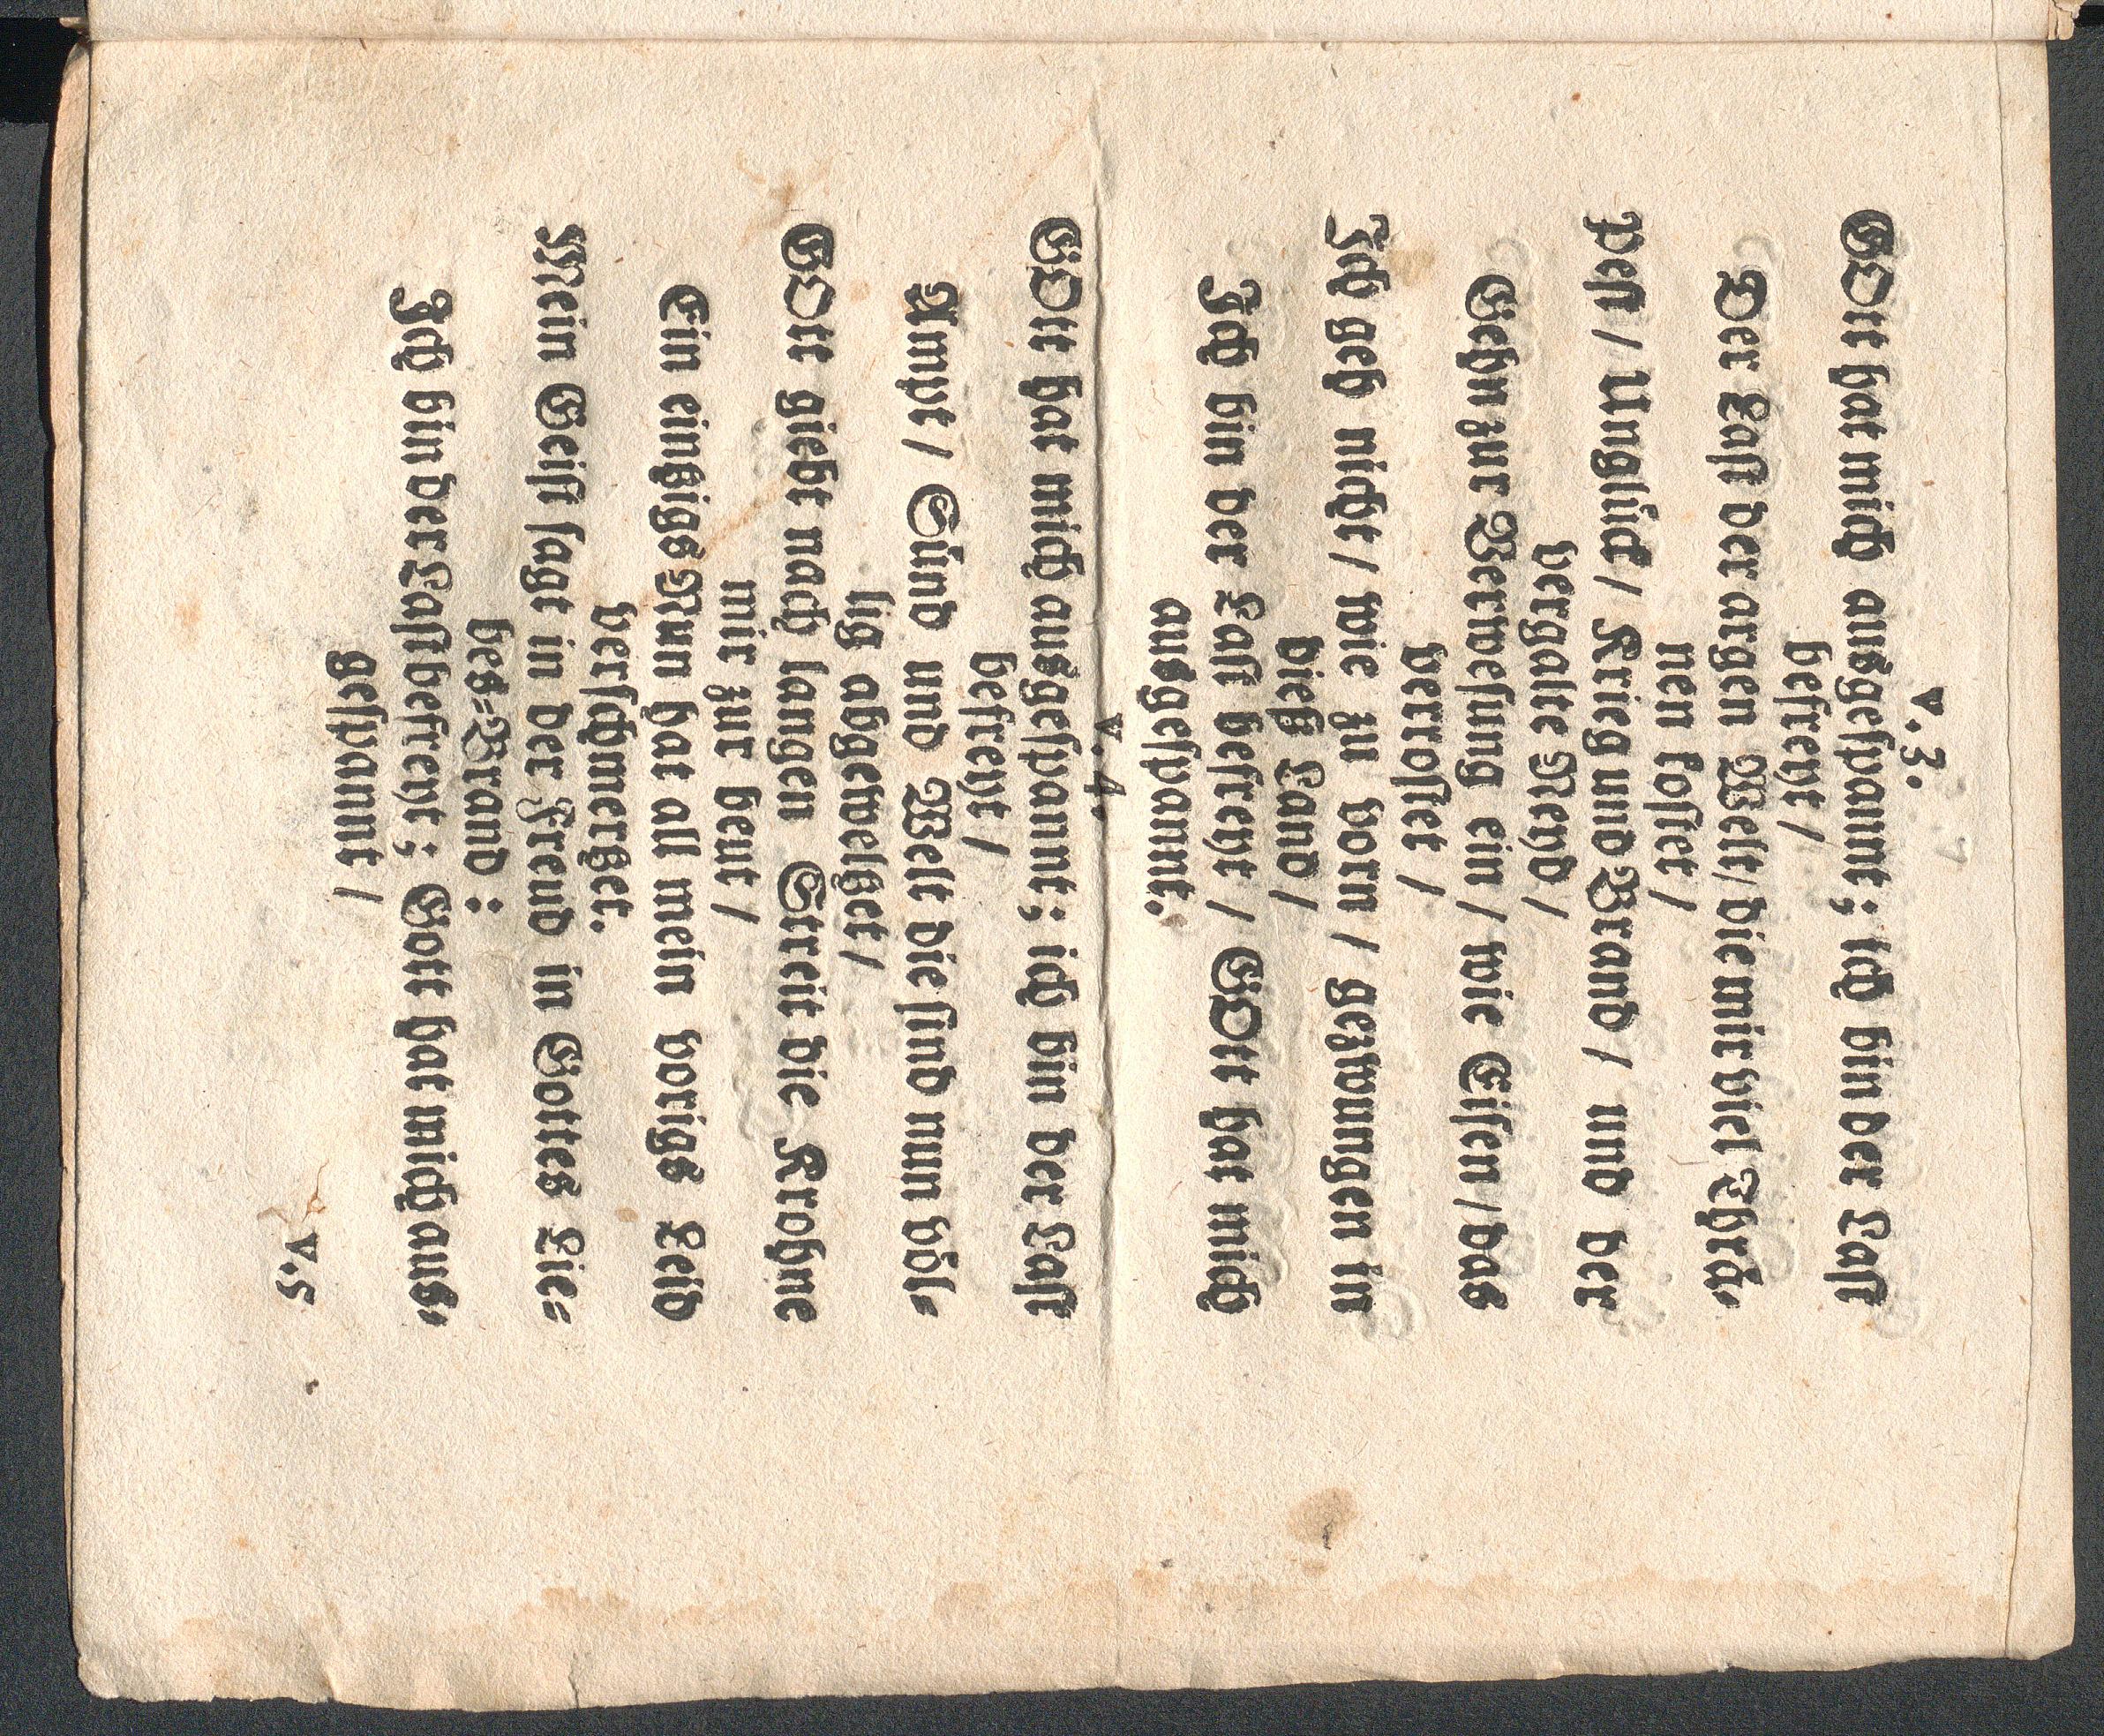 v. 3.
GOtt hat mich ausgespannt; ich bin der Last
befreyt /
Der Last der argen Welt / die mir viel Thrä-
nen koster /
Pest / Unglück / Krieg und Brand / und der
vergalte Neyd /
Gehn zur Verwesung ein / wie Eisen / das
verrostet /
Ich geh nicht / wie zu vorn / gezwungen in
dieß Land /
Ich bin der Last befreyt / GOtt hat mich
ausgespannt.
v. 4.
GOtt hat mich ausgespannt; ich bin der Last
befreyt /
Ampt / Sünd und Welt die sind nun völ-
lig abgewelßet /
GOtt giebt nach langen Streit die Krohne
mir zur beut /
Ein eintzigs Nun hat all mein vorigs Leid
verschmertzet.
Mein Geist sagt in der Freud in Gottes Lie-
bes-Brand :
Ich bin der Last befreyt; Gott hat mich aus-
gespannt /
v. 5